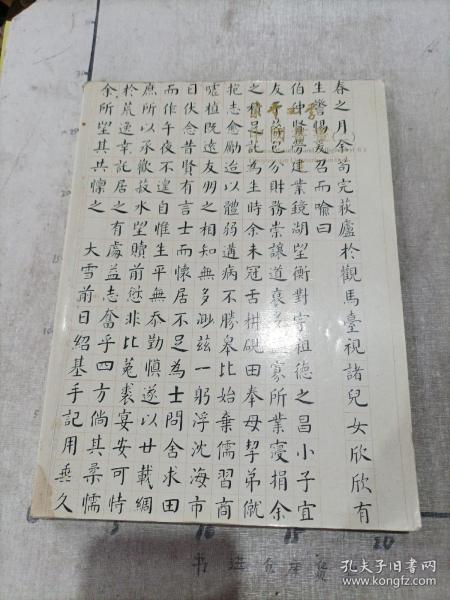 春之月余苟完荻廬於觀馬臺視諸兒女欣欣有
生
友召而喻曰
伯仲賢勞建業鏡湖望衡對宇祖德之昌小子宜
友
分財務崇讓道哀
寡所業寖捐余
之
為生時余未冠舌耕硯田奉母挈弟僦
抱志愈勵迨以體弱遘病不勝皋比始棄儒習商
嗟植既遠友朋之相知無多渺茲一躬浮沈海市
日伏念昔賢有言士而懷居不足為士問舍求田
而作午夜不遑自惟生平無忝勤慎遂以廿載綢
庶所以承歡菽水望贖前愆非比菟裘宴安可恃
於荒逸幸託居之有處益志奮乎四方倘其柔懦
余所望其共懍之 大雪前日紹基手記用垂久
孔夫子旧书网
www.kongfz.com